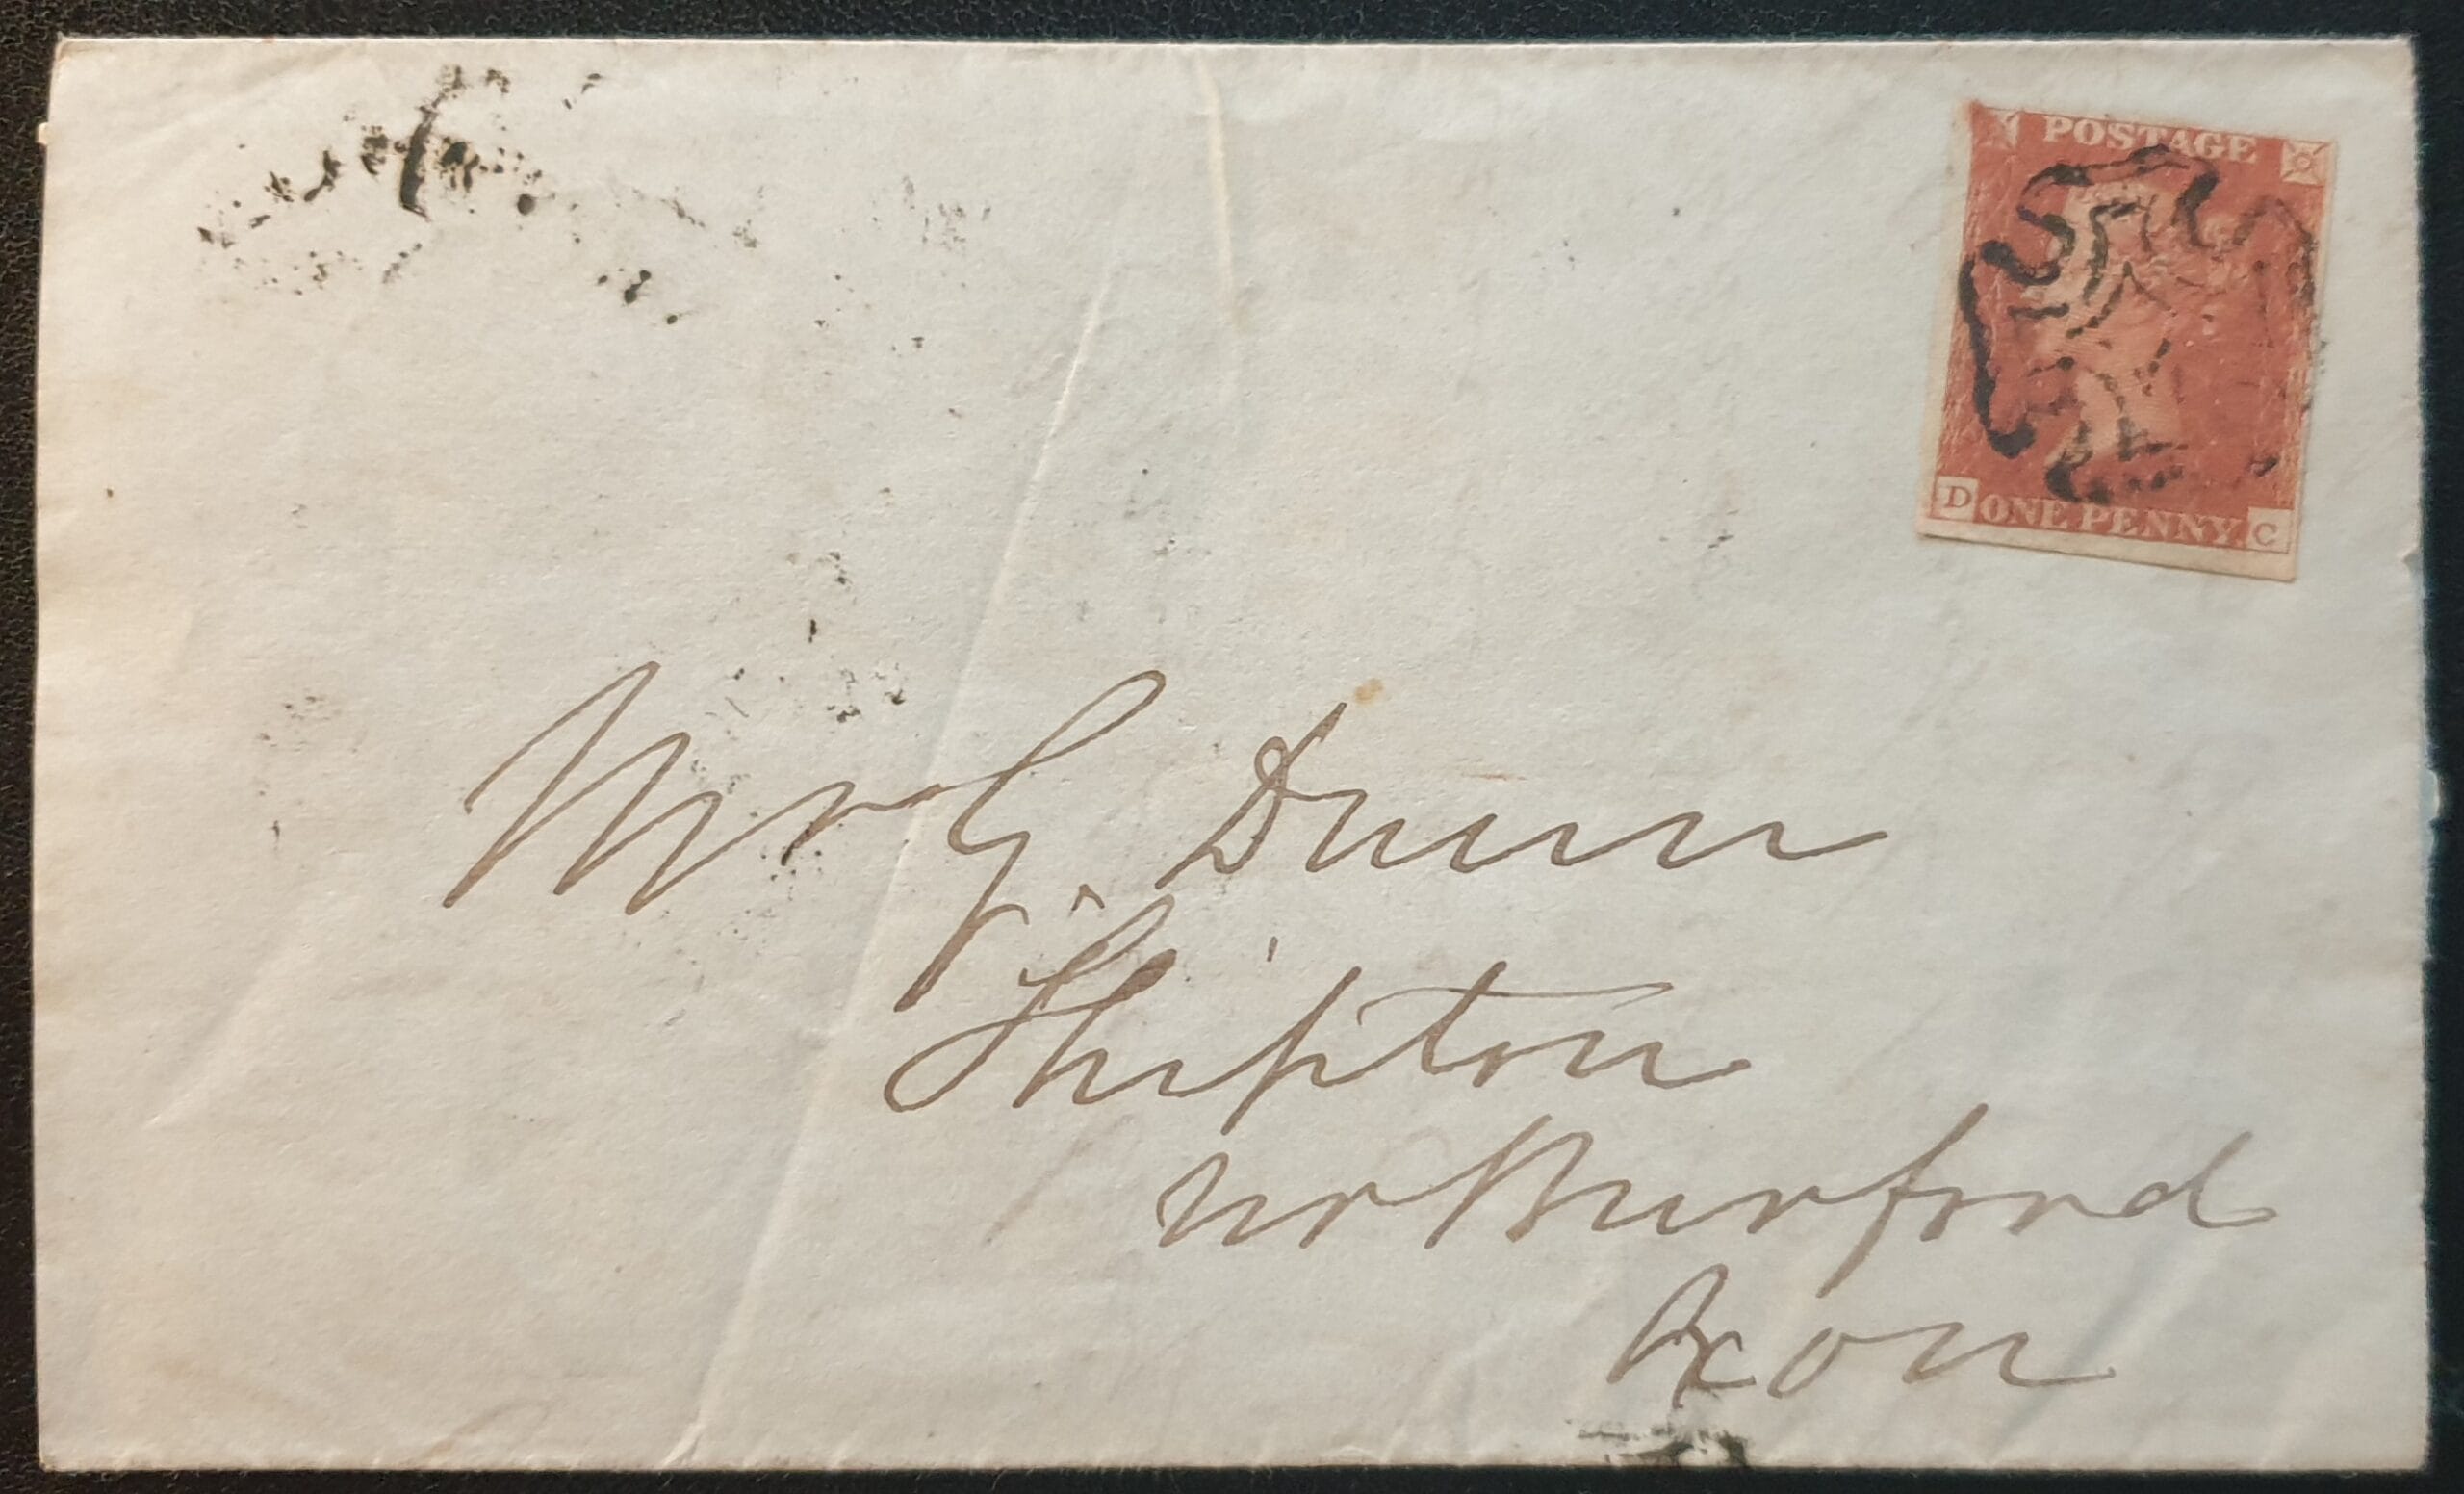 POSTAGE
D ONE PENNY. C
Mr G. Dunn
Shipton
nr Burford
Oxon